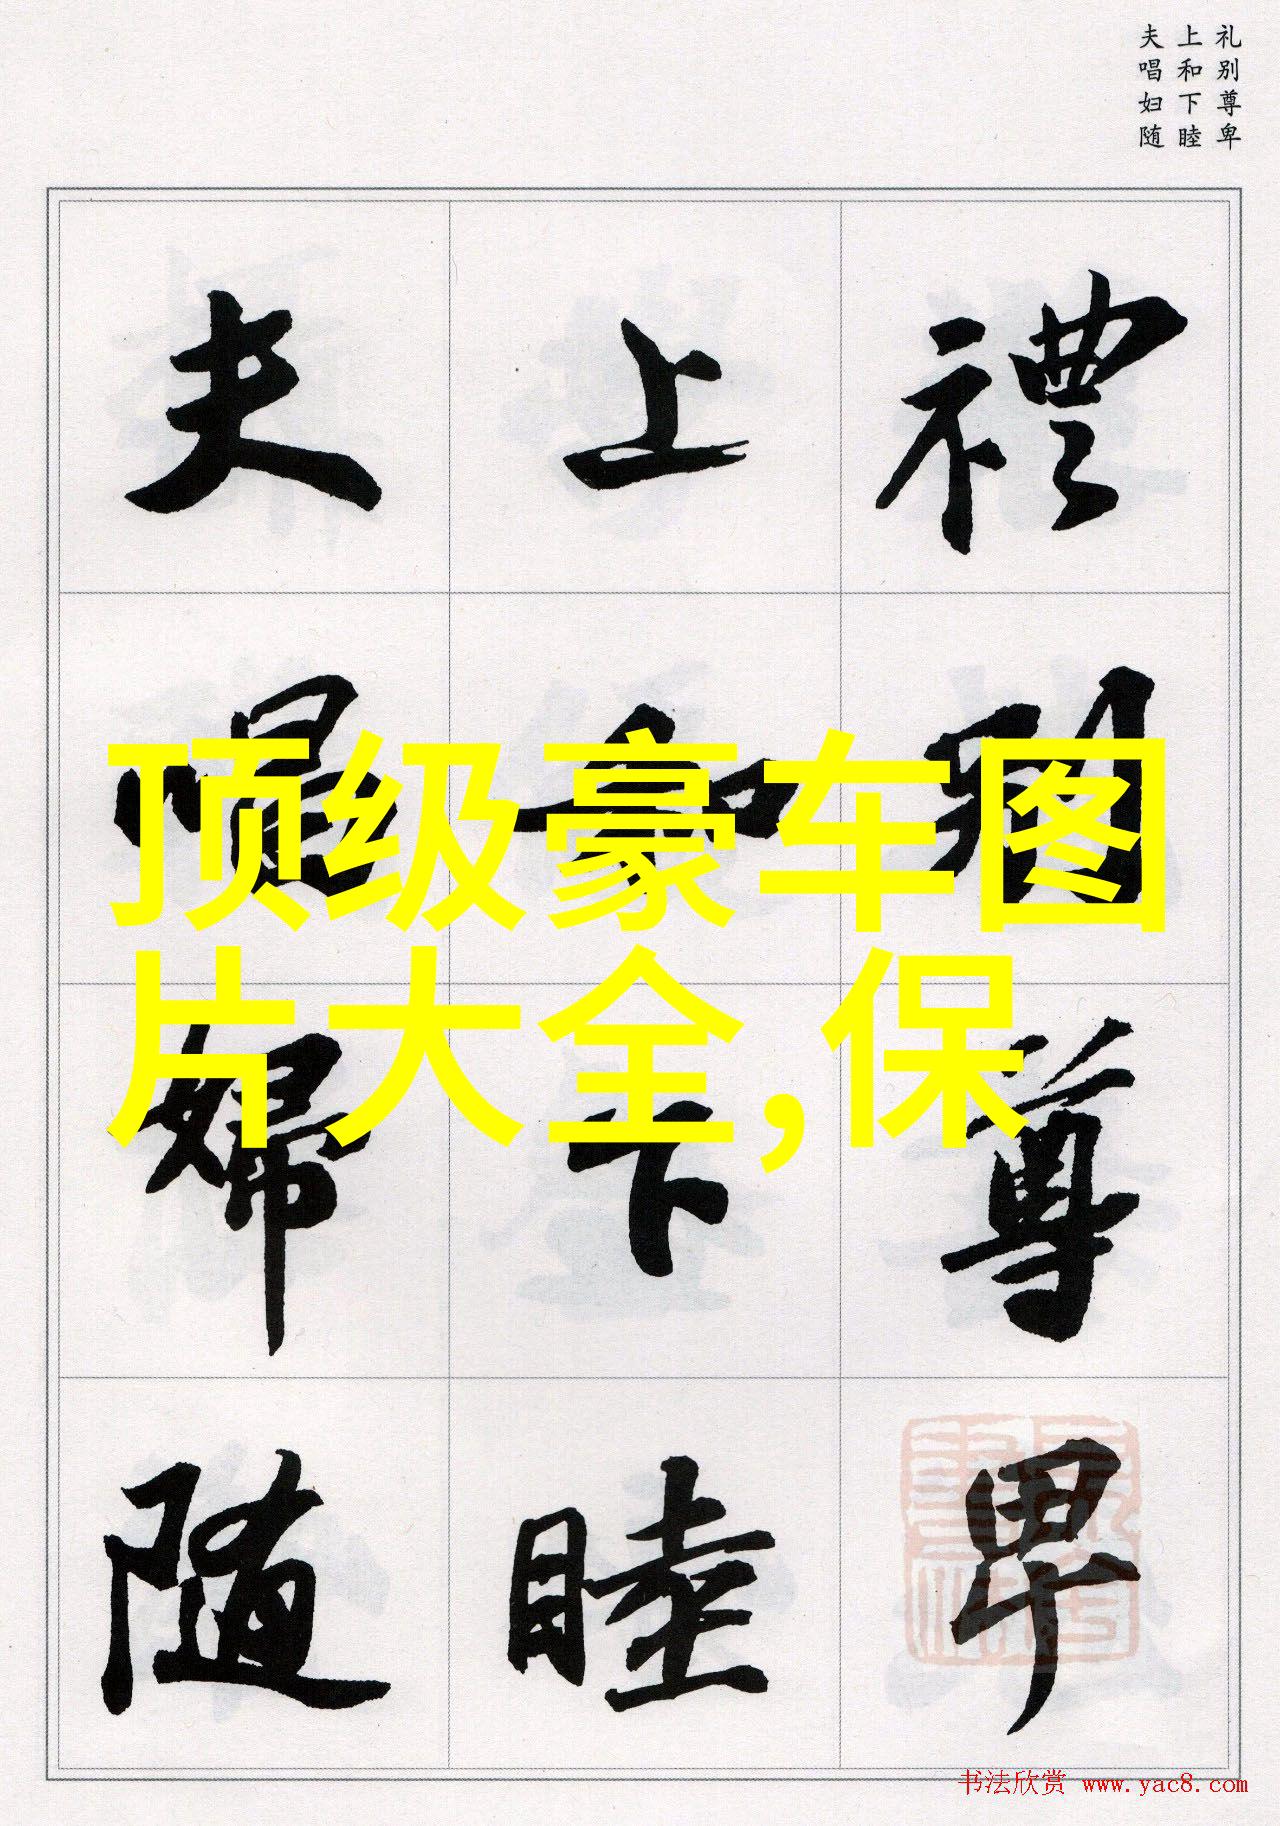 礼别尊卑
上和下睦
夫唱妇随
禮別尊卑
上和下睦
夫唱婦随
顶级豪车图
片大全,保
书法欣赏 www.yac8.com